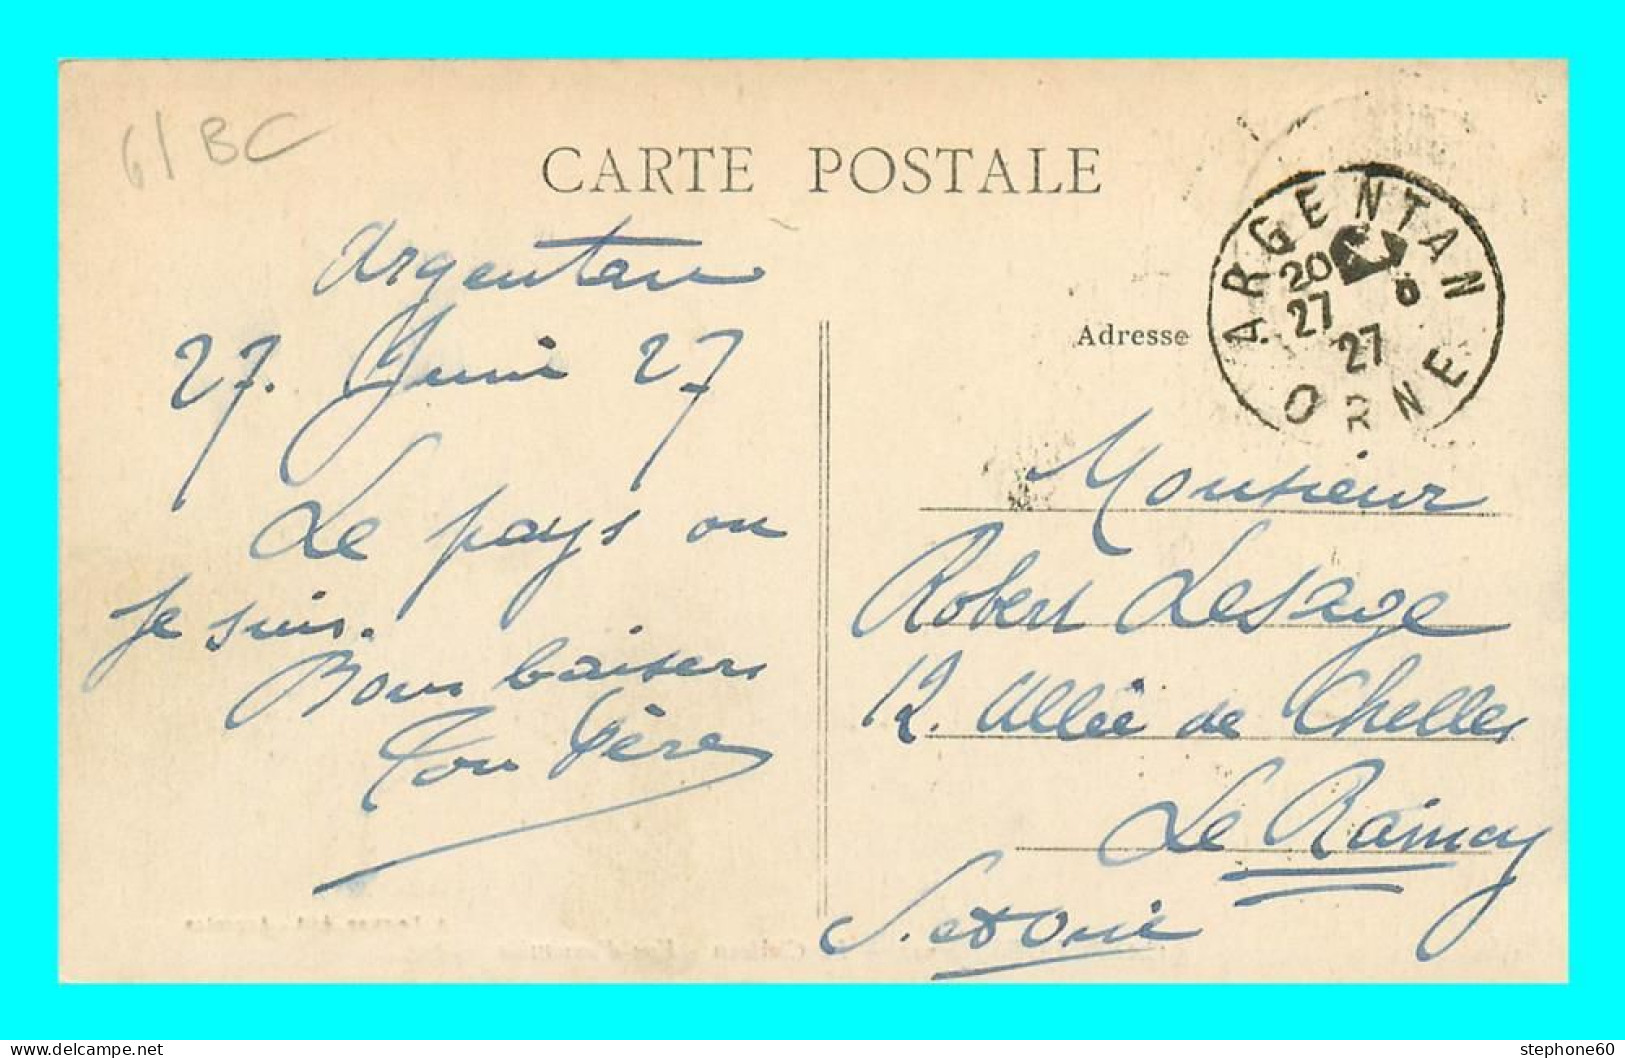 61 BC
CARTE POSTALE
Argentan
27. Juin 27
Le pays ou
je suis.
Bons baisers
Ton Père
ARGENTAN
20
27
27
ORNE
Adresse
Monsieur
Robert Lesage
12. Allée de Chelles
Le Raincy
S. et Oise
delcampe.net
stephone60